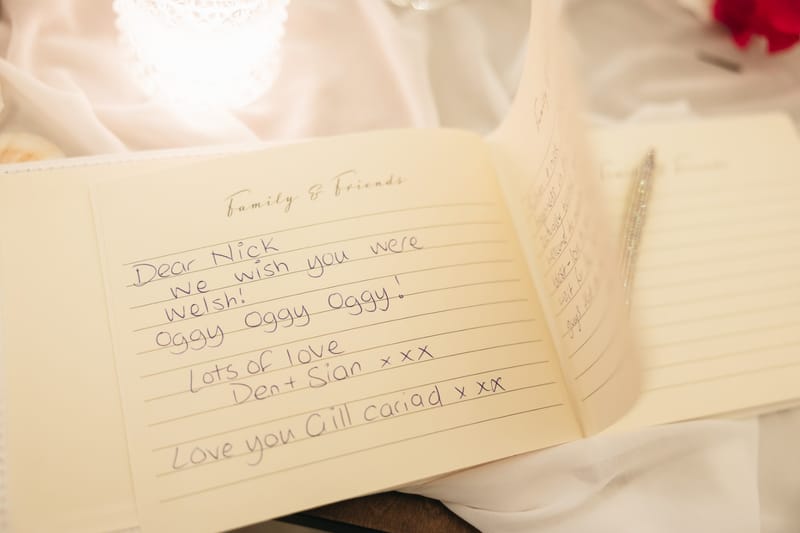 Family & Friends
Dear Nick
we wish you were
welsh!
Oggy Oggy Oggy!
Lots of love
Den + Sian x x x
Love you Gill cariad x xx
Family & Friends